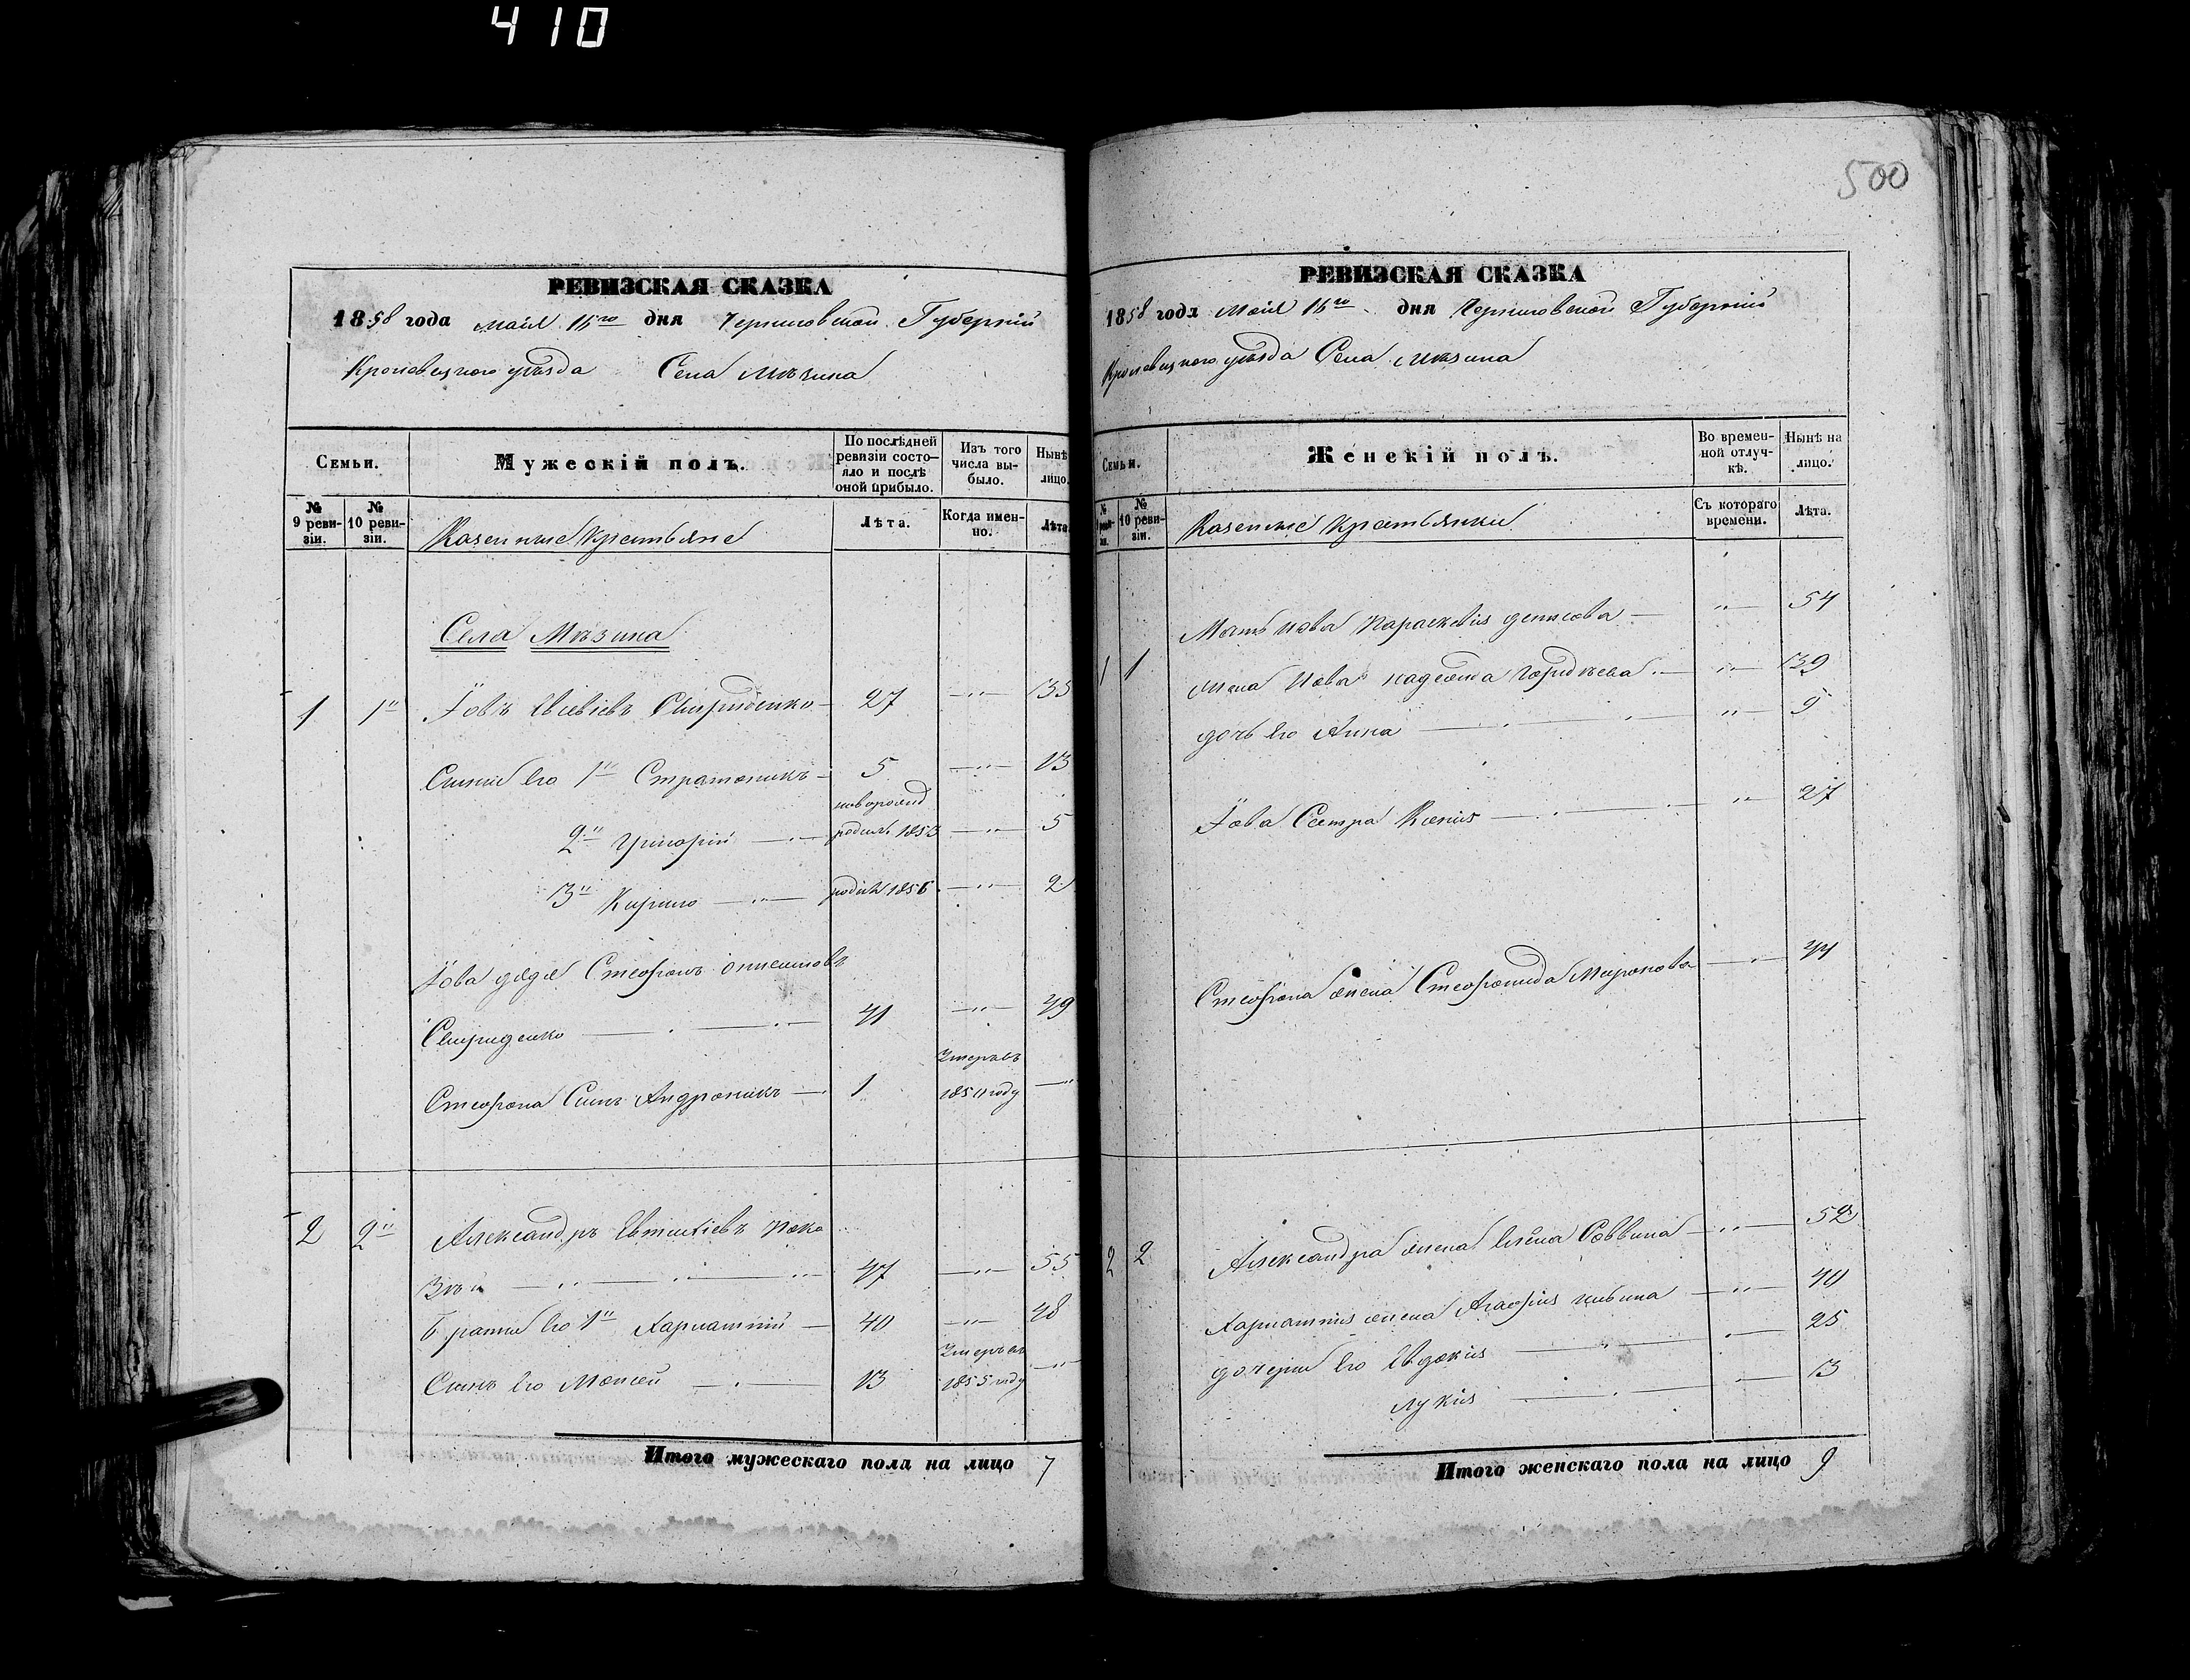 410
РЕВИЗСКАЯ СКАЗКА
1858 года Маія 15го дня Черниговской Губерніи
Кролевецкого уѣзда Села Мѣзина
Семьи.
Мужескій полъ.
По послѣдней ревизіи состояло и послѣ оной прибыло.
Изъ того числа выбыло.
Нынѣ лицо.
№ 9 ревизіи.
№ 10 ревизіи.
Казенные Крестьяне
Лѣта.
Когда именно.
Лѣта
Села Мѣзина
1 1" Іовъ Свириденко 27 —"— 35
Сыны его 1й Стратоникъ 5 —"— 13
новорожд
2й Григорій родил. 1853 —"— 5
3й Кирило родил. 1856 —"— 2
Іова дядя Стефанъ
Свириденко 41 —"— 49
Умеръ въ
Стефана Сынъ Андроникъ 1 году —"
2 2" Александръ Евтихіевъ Пока
47 —"— 55
Братъ его 1й Харлампій 40 —"— 48
Умеръ въ
Сынъ его Моисей 13 1855 году —"
Итого мужескаго пола на лицо 7
500
РЕВИЗСКАЯ СКАЗКА
1858 года Маія 15го дня Черниговской Губерніи
Кролевецкого уѣзда Села Мѣзина
Семьи.
Женскій полъ.
Во временной отлучкѣ.
Нынѣ на лицо.
№ 9 ревизіи.
№ 10 ревизіи.
Казенные Крестьянки
Съ котораго времени.
Лѣта.
Мать Іова Параскевія Денисова —"— 54
1 1 Жена Іова Надежда Гордѣева —"— 39
дочь его Анна —"— 9
Іова Сестра Ксенія —"— 27
Стефана жена Стефанида Миронова 44
2 2 Александра жена Елена Саввина —"— 52
Харлампія жена Агафія —"— 40
дочери его Евдокія 25
Лукія 13
Итого женскаго пола на лицо 9